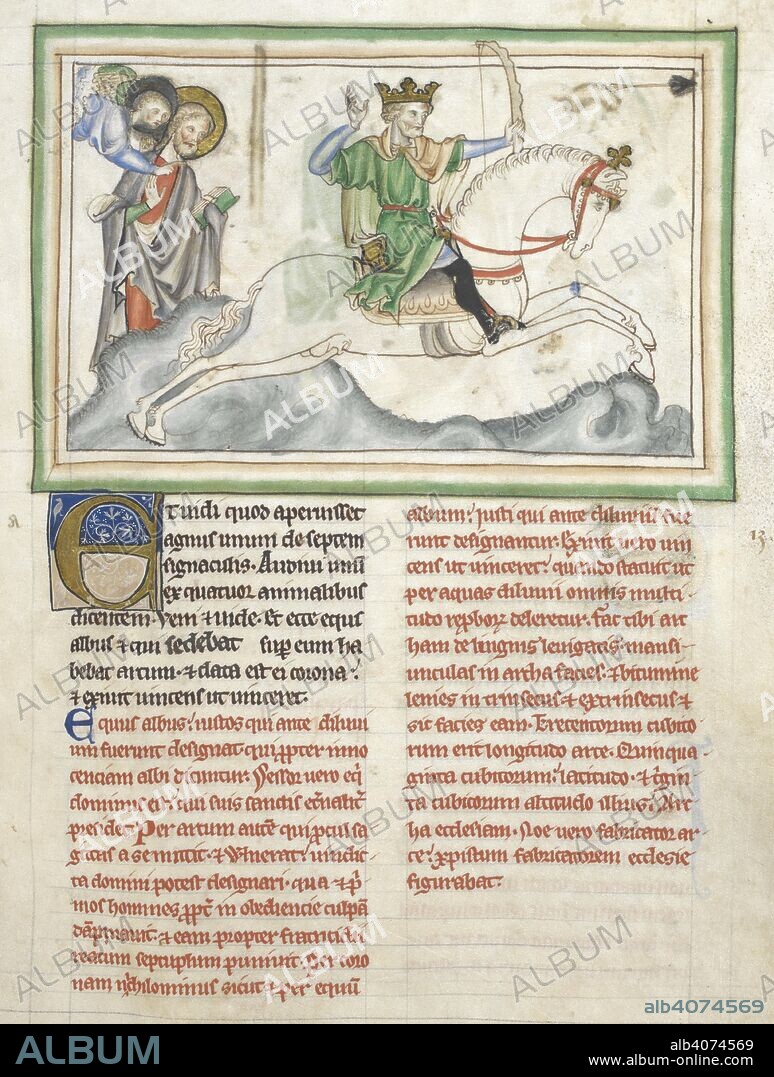 Et uidi quod aperuisset
agnus unum de septem
signaculis. Audiui unū
ex quatuor animalibus
dicentem. Veni & uide. Et ecce equs
albus & qui sedebat sup eum ha
bebat arcum. & data est ei corona.
& exiuit uincens ut uinceret.
Equus albus. iustos qui ante diluui
um fuerunt designat. qui ppter inno
centiam albi dicuntur. Sessor uero eq̄
dominus est. qui suis sanctis
presidet. Per arcum autē qui pcul sa
gittas a se mittit. & uulnerat. uindic
ta domini potest designari. qua & p̄
mos homines ppt inobediencie culpā
dāpnauit. & eam propter fratricidii
reatum septuplum puniuit. Per coro
nam nichilominus sicut & per equū
album. iusti qui ante diluuiū fue
runt designantur. Exiuit uero uin
cens ut uinceret. quando statuit ut
per aquas diluuii omnis multi
tudo repboꝝ deleretur. fac tibi ar
cham de lingnis leuigatis. mansi
unculas in archa facies. & bitumine
lenies intrinsecus & extrinsecus &
sic facies eam. Trecentorum cubito
rum erit longitudo arce. Quinqua
ginta cubitorum. latitudo. & t̄gin
ta cubitorum altitudo illius. Ar
cha ecclesiam. Noe uero fabricator ar
ce. xpistum fabricatorem ecclesie
figurabat.
13.
ALBUM
alb4074569
ALBUM
alb4074569
www.album-online.com